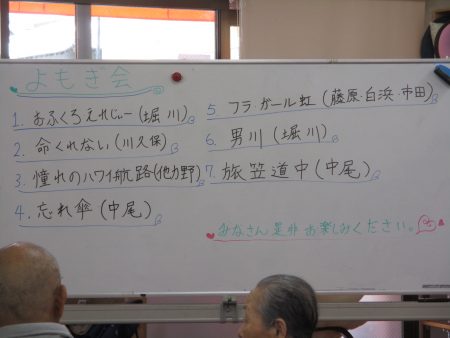 よもぎ会
1. おふくろえれじぃー (堀川)
2. 命くれない (川久保)
3. 憧れのハワイ航路 (他力野)
4. 忘れ傘 (中尾)
5 フラ・ガール虹 (藤原・白浜・市田)
6. 男川 (堀川)
7. 旅笠道中 (中尾)
みなさん是非お楽しみください。